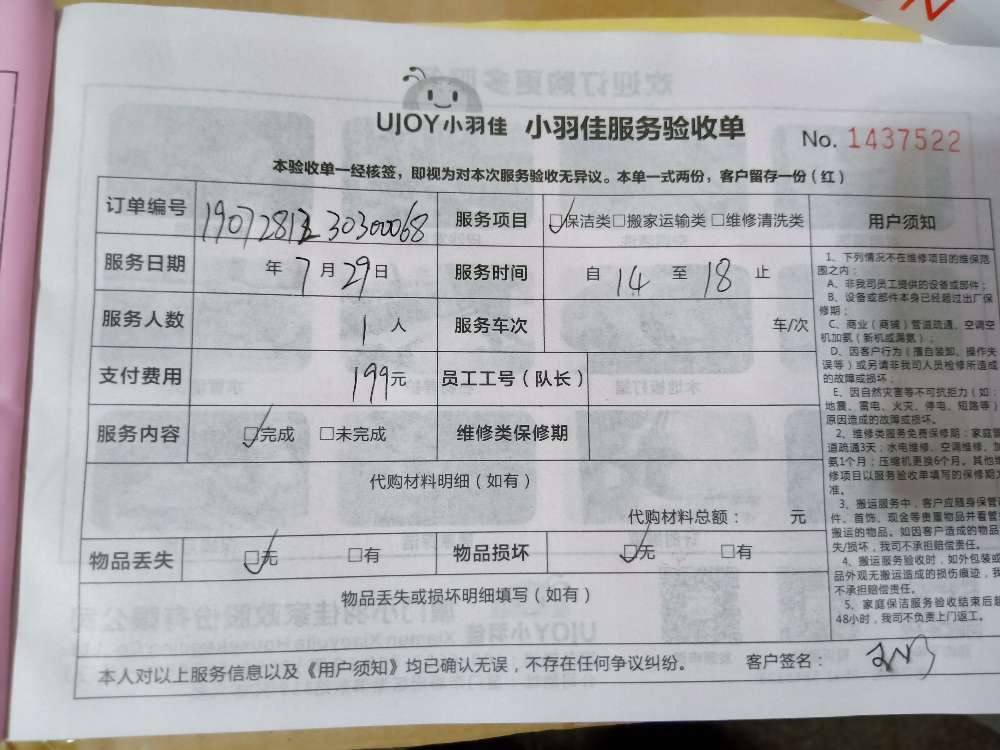 UJOY小羽佳 小羽佳服务验收单 No. 1437522
本验收单一经核签，即视为对本次服务验收无异议。本单一式两份，客户留存一份（红）
订单编号 服务项目 ☑保洁类□搬家运输类□维修清洗类
服务日期 年 7 月 29 日 服务时间 自 14 至 18 止
服务人数 1 人 服务车次 车/次
支付费用 199元 员工工号（队长）
服务内容 ☑完成 □未完成 维修类保修期
代购材料明细（如有）
代购材料总额： 元
物品丢失 ☑无 □有 物品损坏 ☑无 □有
物品丢失或损坏明细填写（如有）
本人对以上服务信息以及《用户须知》均已确认无误，不存在任何争议纠纷。 客户签名：
用户须知
1、下列情况不在维修项目的维保范
围之内：
A、非我司员工提供的设备或部件；
B、设备或部件本身已经超过出厂保
修期；
C、商业（商铺）管道疏通、空调空
机加氨（新机或漏氨）；
D、因客户行为（擅自装卸、操作失
误等）或另请非我司人员检修所造成
的故障或损坏；
E、因自然灾害等不可抗拒力（如：
地震、雷电、火灾、停电、短路等）
原因造成的故障或损坏。
2、维修类服务免费保修期：家庭管
道疏通3天；水电维修、空调维修、加
氨1个月；压缩机更换6个月。其他维
修项目以服务验收单填写的保修期为
准。
3、搬运服务中，客户应随身保管证
件、首饰、现金等贵重物品并看管
搬运的物品。如因客户造成的物品
失/损坏，我司不承担赔偿责任。
4、搬运服务验收时，如外包装或
品外观无搬运造成的损伤痕迹，我
不承担赔偿责任。
5、家庭保洁服务验收结束后超
48小时，我司不负责上门返工。